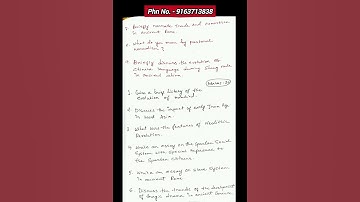 Phn No. - 9163713838
2. Briefly narrate trade and commerce
in ancient Rome.
3. What do you mean by pastoral
nomadism?
4. Briefly discuss the evolution of
Chinese language during Shang rule
in ancient china.
1. Give a brief history of the
evolution of mankind.
2. Discuss the impact of early Iron Age
in West Asia.
3. What were the features of Neolithic
Revolution.
4. Write an essay on the Spartan Social
System with special reference to
the Spartan citizens.
5. Write an essay on slave System
in ancient Rome.
6. Discuss the trends of the development
of tragic drama in ancient Greece.